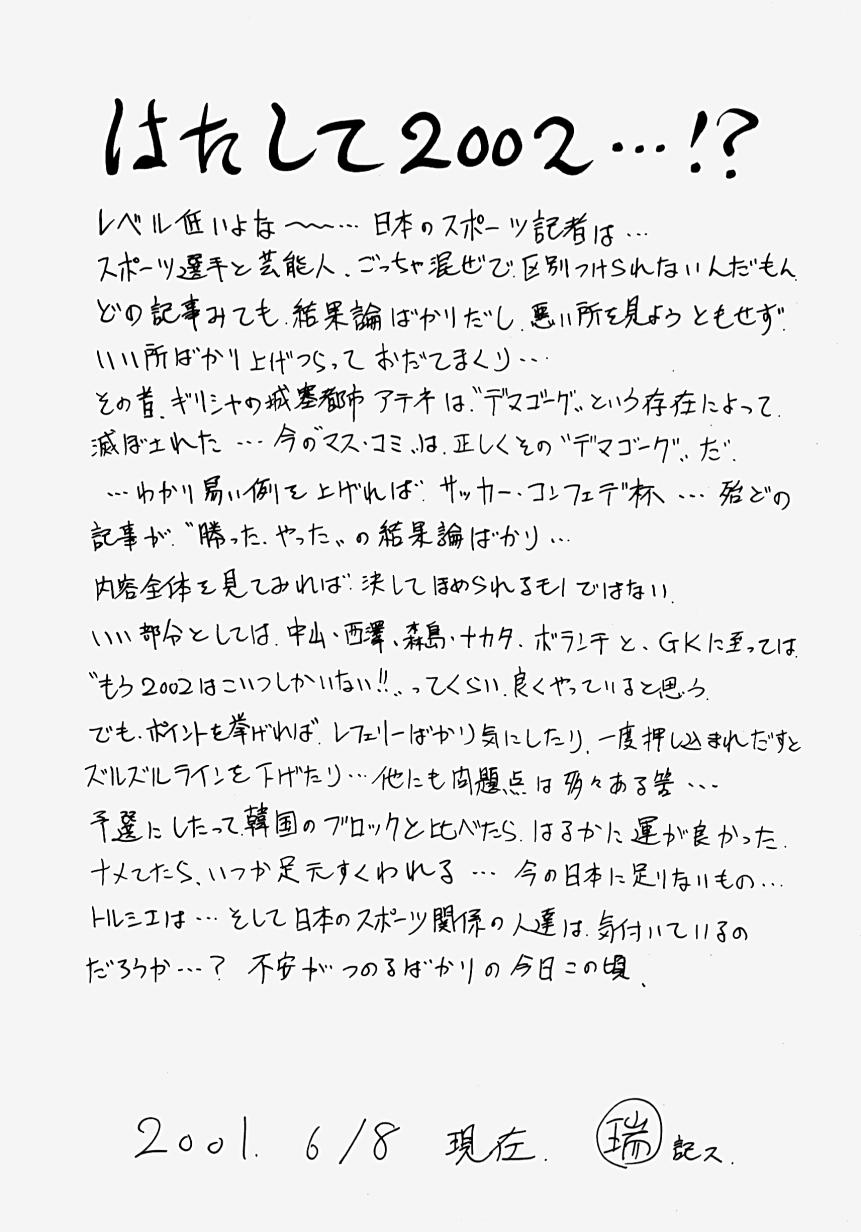 はたして2002…!?
レベル低いよな〜〜… 日本のスポーツ記者は…
スポーツ選手と芸能人、ごっちゃ混ぜで、区別つけられないんだもん、
どの記事みても、結果論ばかりだし、悪い所を見ようともせず、
いい所ばかり上げつらって おだてまくり…
その昔、ギリシャの城塞都市 アテネは、“デマゴーグ„という存在によって、
滅ぼされた … 今の“マス・コミ„は、正しくその“デマゴーグ„だ。
…わかり易い例を上げれば、サッカー・コンフェデ杯 … 殆どの
記事が、“勝った、やった„の結果論ばかり…
内容全体を見てみれば、決してほめられるモノではない、
いい部分としては、中山・西澤、森島・ナカタ、ボランチと、GKに至っては、
“もう2002はこいつしかいない!!„ってくらい、良くやっていると思う、
でも、ポイントを挙げれば、レフェリーばかり気にしたり、一度押し込まれだすと
ズルズルラインを下げたり…他にも問題点は多々ある筈…
予選にしたって、韓国のブロックと比べたら、はるかに運が良かった、
ナメてたら、いつか足元すくわれる … 今の日本に足りないもの…
トルシエは…そして日本のスポーツ関係の人達は、気付いているの
だろうか…？ 不安がつのるばかりの今日この頃、
2001. 6/8 現在. 瑞 記ス.